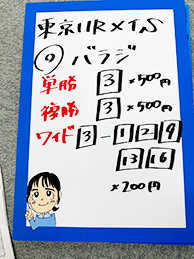 東京11R×イS
⑨バラジ
単勝 3 ×500円
複勝 3 ×500円
ワイド 3-1 2 9
13 16
×200円